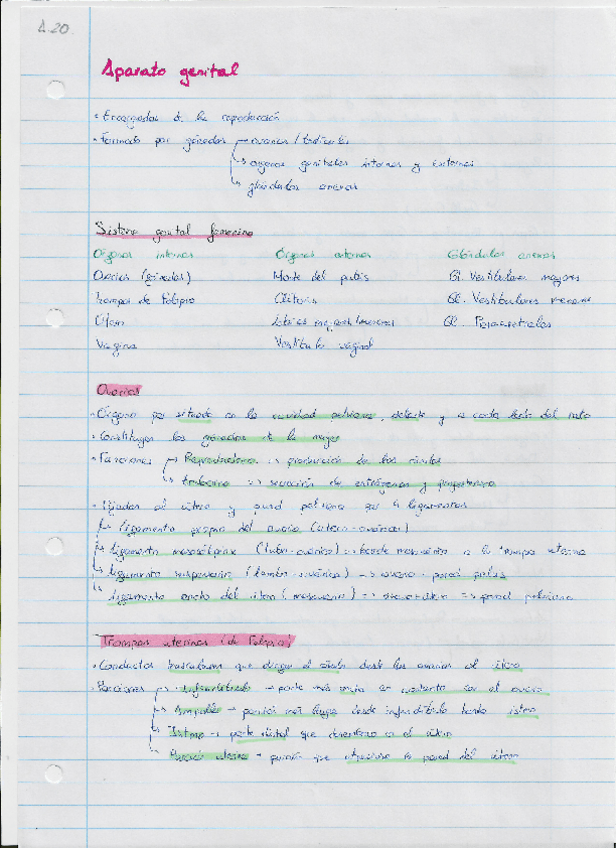 A.20
Aparato genital
· Encargados de la reproducción
· Formado por gónadas → ovarios / testículos
→ órganos genitales internos y externos
→ glándulas anexas
Sistema genital femenino
Órganos internos Órganos externos Glándulas anexas
Ovarios (gónadas) Monte del pubis Gl. Vestibulares mayores
Trompas de Falopio Clítoris Gl. Vestibulares menores
Útero Labios Gl. Parauretrales
Vagina Vestíbulo vaginal
Ovarios
· Órgano par situado en la cavidad pelviana, delante y a cada lado del recto
· Constituyen las gónadas de la mujer
· Funciones → Reproductora → producción de los óvulos
→ Endocrina → secreción de estrógenos y progesterona
· Fijados al útero y pared pelviana por 4 ligamentos
→ Ligamento propio del ovario (útero-ovárico)
→ Ligamento (tubo-ovárico) → desde mesovario a la trompa uterina
→ Ligamento suspensorio (lumbo-ovárico) → ovario - pared pelvis
→ Ligamento ancho del útero (mesovario) → → pared pelviana
Trompas uterinas (de Falopio)
· Conductos musculares que dirigen el óvulo desde los ovarios al útero
· Porciones → Infundíbulo → parte más ancha en contacto con el ovario
→ Ampolla → porción más larga desde infundíbulo hasta istmo
→ Istmo → parte distal que desemboca en el útero
→ Porción uterina → porción que atraviesa la pared del útero